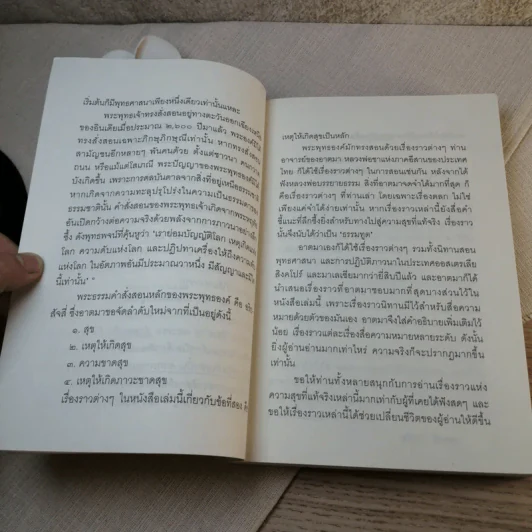 เริ่มต้นก็มีพุทธศาสนาเพียงหนึ่งเดียวเท่านั้นแหละ
พระพุทธเจ้าทรงสั่งสอนอยู่ทางตะวันออกเฉียงเหนือ
ของอินเดียเมื่อประมาณ ๒,๖๐๐ ปีมาแล้ว พระองค์มิได้
ทรงสั่งสอนเฉพาะภิกษุภิกษุณีเท่านั้น หากทรงสั่งสอน
สามัญชนอีกหลายๆ พันคนด้วย ตั้งแต่ชาวนา คนกวาด
ถนน หรือแม้แต่โสเภณี พระปัญญาของพระพุทธองค์มิได้
บังเกิดขึ้น เพราะการดลบันดาลจากสิ่งที่อยู่เหนือธรรมชาติ
หากเกิดจากความทะลุปรุโปร่งในความเป็นธรรมดาของ
ธรรมชาตินั้น คำสั่งสอนของพระพุทธเจ้าเกิดจากพระหฤทัย
อันเปิดกว้างต่อความจริงด้วยพลังจากการภาวนาอย่างลึก
ซึ้ง ดังพุทธพจน์ที่คุ้นหูว่า 'เราย่อมบัญญัติโลก เหตุให้เกิด
โลก ความดับแห่งโลก และปฏิปทาเครื่องให้ถึงความดับ
แห่งโลก ในอัตภาพอันมีประมาณวาหนึ่ง มีสัญญาและมีใจ
นี้เท่านั้น'
พระธรรมคำสั่งสอนหลักของพระพุทธองค์ คือ อริย
สัจสี่ ซึ่งอาตมาขอจัดลำดับใหม่จากที่เป็นอยู่ดังนี้
๑. สุข
๒. เหตุให้เกิดสุข
๓. ความขาดสุข
๔. เหตุให้เกิดภาวะขาดสุข
เรื่องราวต่างๆ ในหนังสือเล่มนี้เกี่ยวกับข้อที่สอง
เหตุให้เกิดสุขเป็นหลัก
พระพุทธองค์มักทรงสอนด้วยเรื่องราวต่างๆ ท่าน
อาจารย์ของอาตมา หลวงพ่อชาแห่งภาคอีสานของประเทศ
ไทย ก็ใช้เรื่องราวต่างๆ ในการสอนเช่นกัน หลังจากได้
ฟังหลวงพ่อบรรยายธรรม สิ่งที่อาตมาจดจำได้มากที่สุด ก็
คือเรื่องราวต่างๆ ที่ท่านเล่า โดยเฉพาะเรื่องตลก ไม่ใช่
เพียงแต่จำได้ง่ายเท่านั้น หากเรื่องราวเหล่านี้ยังสื่อคำ
ชี้แนะที่ลึกซึ้งยิ่งสำหรับทางไปสู่ความสุขที่แท้จริง เรื่องราว
นั้นจึงนับได้ว่าเป็น 'ธรรมทูต'
อาตมาเองก็ได้ใช้เรื่องราวต่างๆ รวมทั้งนิทานสอน
พุทธศาสนา และการปฏิบัติภาวนาในประเทศออสเตรเลีย
สิงคโปร์ และมาเลเซียมากว่ายี่สิบปีแล้ว และอาตมาก็ได้
นำเสนอเรื่องราวที่อาตมาชอบมากที่สุดบางส่วนไว้ใน
หนังสือเล่มนี้ เพราะเรื่องราวนิทานมีไว้สำหรับสื่อความ
หมายด้วยตัวของมันเอง อาตมาจึงใส่คำอธิบายเพิ่มเติมไว้
น้อย เรื่องราวแต่ละเรื่องสื่อความหมายหลายระดับ ดังนั้น
ยิ่งผู้อ่านอ่านมากเท่าใหร่ ความจริงก็จะปรากฏมากขึ้น
เท่านั้น
ขอให้ท่านทั้งหลายสนุกกับการอ่านเรื่องราวแห่ง
ความสุขที่แท้จริงเหล่านี้มากเท่ากับผู้ที่เคยได้ฟังสดๆ และ
ขอให้เรื่องราวเหล่านี้ได้ช่วยเปลี่ยนชีวิตของผู้อ่านให้ดีขึ้น